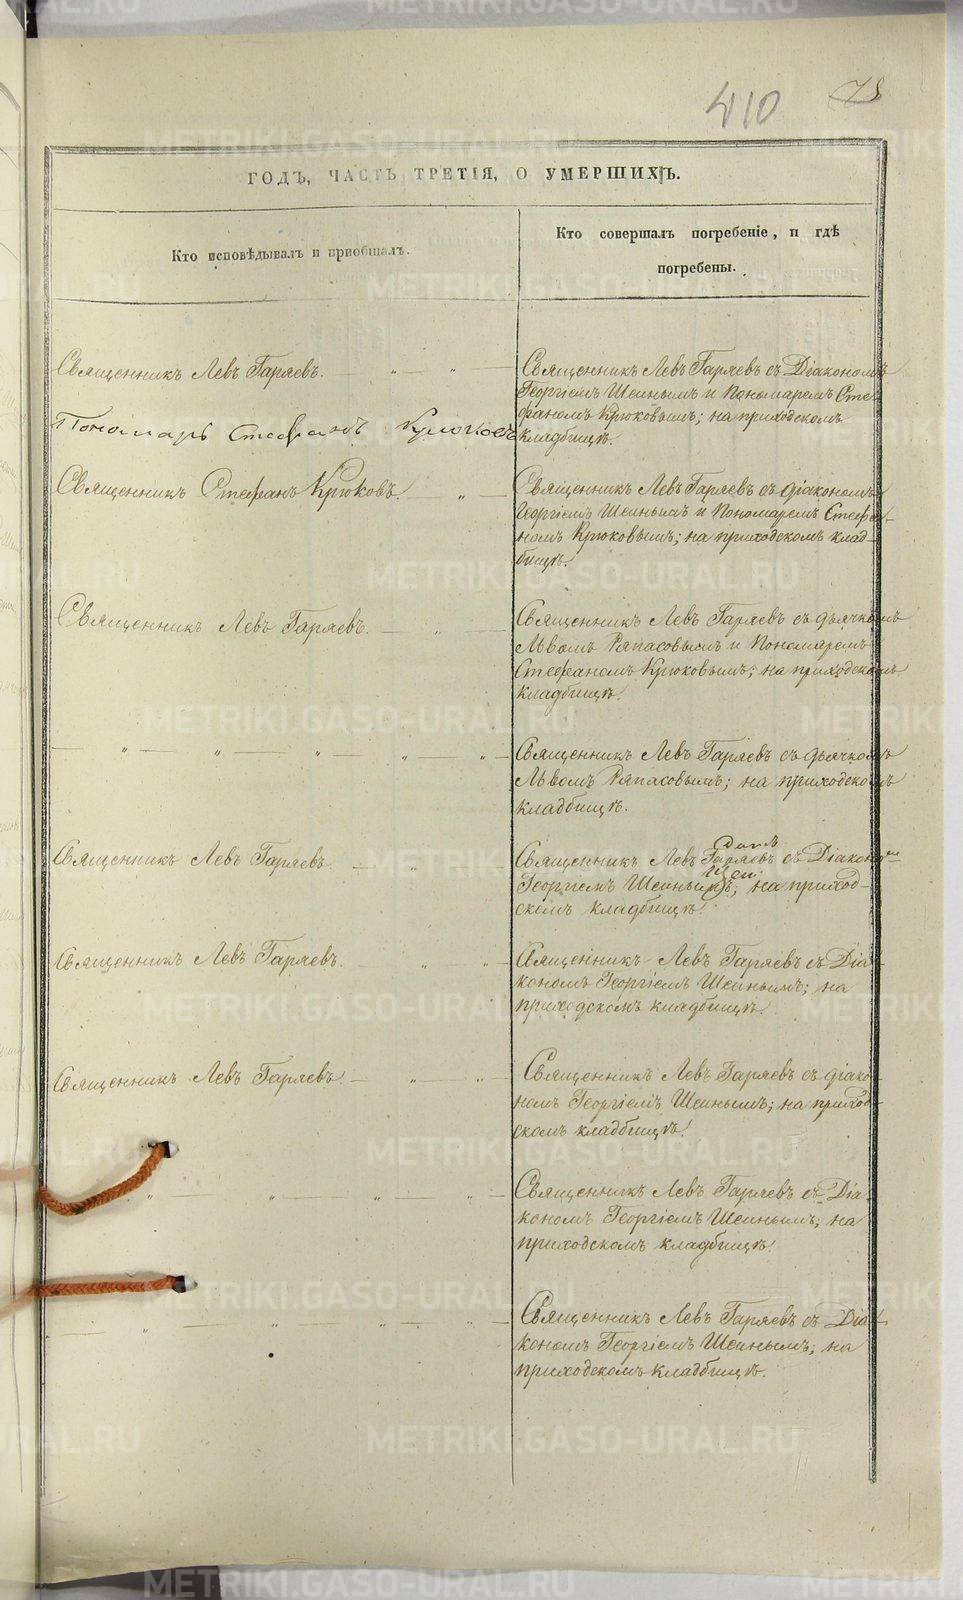 410 78
ГОДЪ, ЧАСТЬ ТРЕТІЯ, О УМЕРШИХЪ.
Кто исповѣдывалъ и пріобщалъ.
Кто совершалъ погребеніе, и гдѣ
погребены.
Священникъ Левъ Гаряевъ. — " — " —
Священникъ Левъ Гаряевъ съ Діакономъ
Георгіемъ Шеинымъ и Пономаремъ Сте-
фаномъ Крюковымъ; на приходскомъ
кладбищѣ.
Пономарь Стефанъ
Священникъ Стефанъ Крюковъ. — " —
Священникъ Левъ Гаряевъ съ діакономъ
Георгіемъ Шеинымъ и Пономаремъ Стефа-
номъ Крюковымъ; на приходскомъ клад-
бищѣ.
Священникъ Левъ Гаряевъ. — " —
Священникъ Левъ Гаряевъ съ дьячкомъ
Львомъ Ряпасовымъ и Пономаремъ
Стефаномъ Крюковымъ; на приходскомъ
кладбищѣ.
— " — " — " — " — " —
Священникъ Левъ Гаряевъ съ дьячкомъ
Львомъ Ряпасовымъ; на приходскомъ
кладбищѣ.
Священникъ Левъ Гаряевъ. — " —
Священникъ Левъ Гаряевъ съ Діакономъ
Георгіемъ Шеинымъ; на приход-
скомъ кладбищѣ.
Священникъ Левъ Гаряевъ. " " —
Священникъ Левъ Гаряевъ съ Діа-
кономъ Георгіемъ Шеинымъ; на
приходскомъ кладбищѣ.
Священникъ Левъ Гаряевъ. — " — " —
Священникъ Левъ Гаряевъ съ діако-
номъ Георгіемъ Шеинымъ; на приход-
скомъ кладбищѣ.
" — " — " — " —
Священникъ Левъ Гаряевъ съ Діа-
кономъ Георгіемъ Шеинымъ; на
приходскомъ кладбищѣ.
— " — " — " — " —
Священникъ Левъ Гаряевъ съ Діа-
кономъ Георгіемъ Шеинымъ; на
приходскомъ кладбищѣ.
METRIKI.GASO-URAL.RU